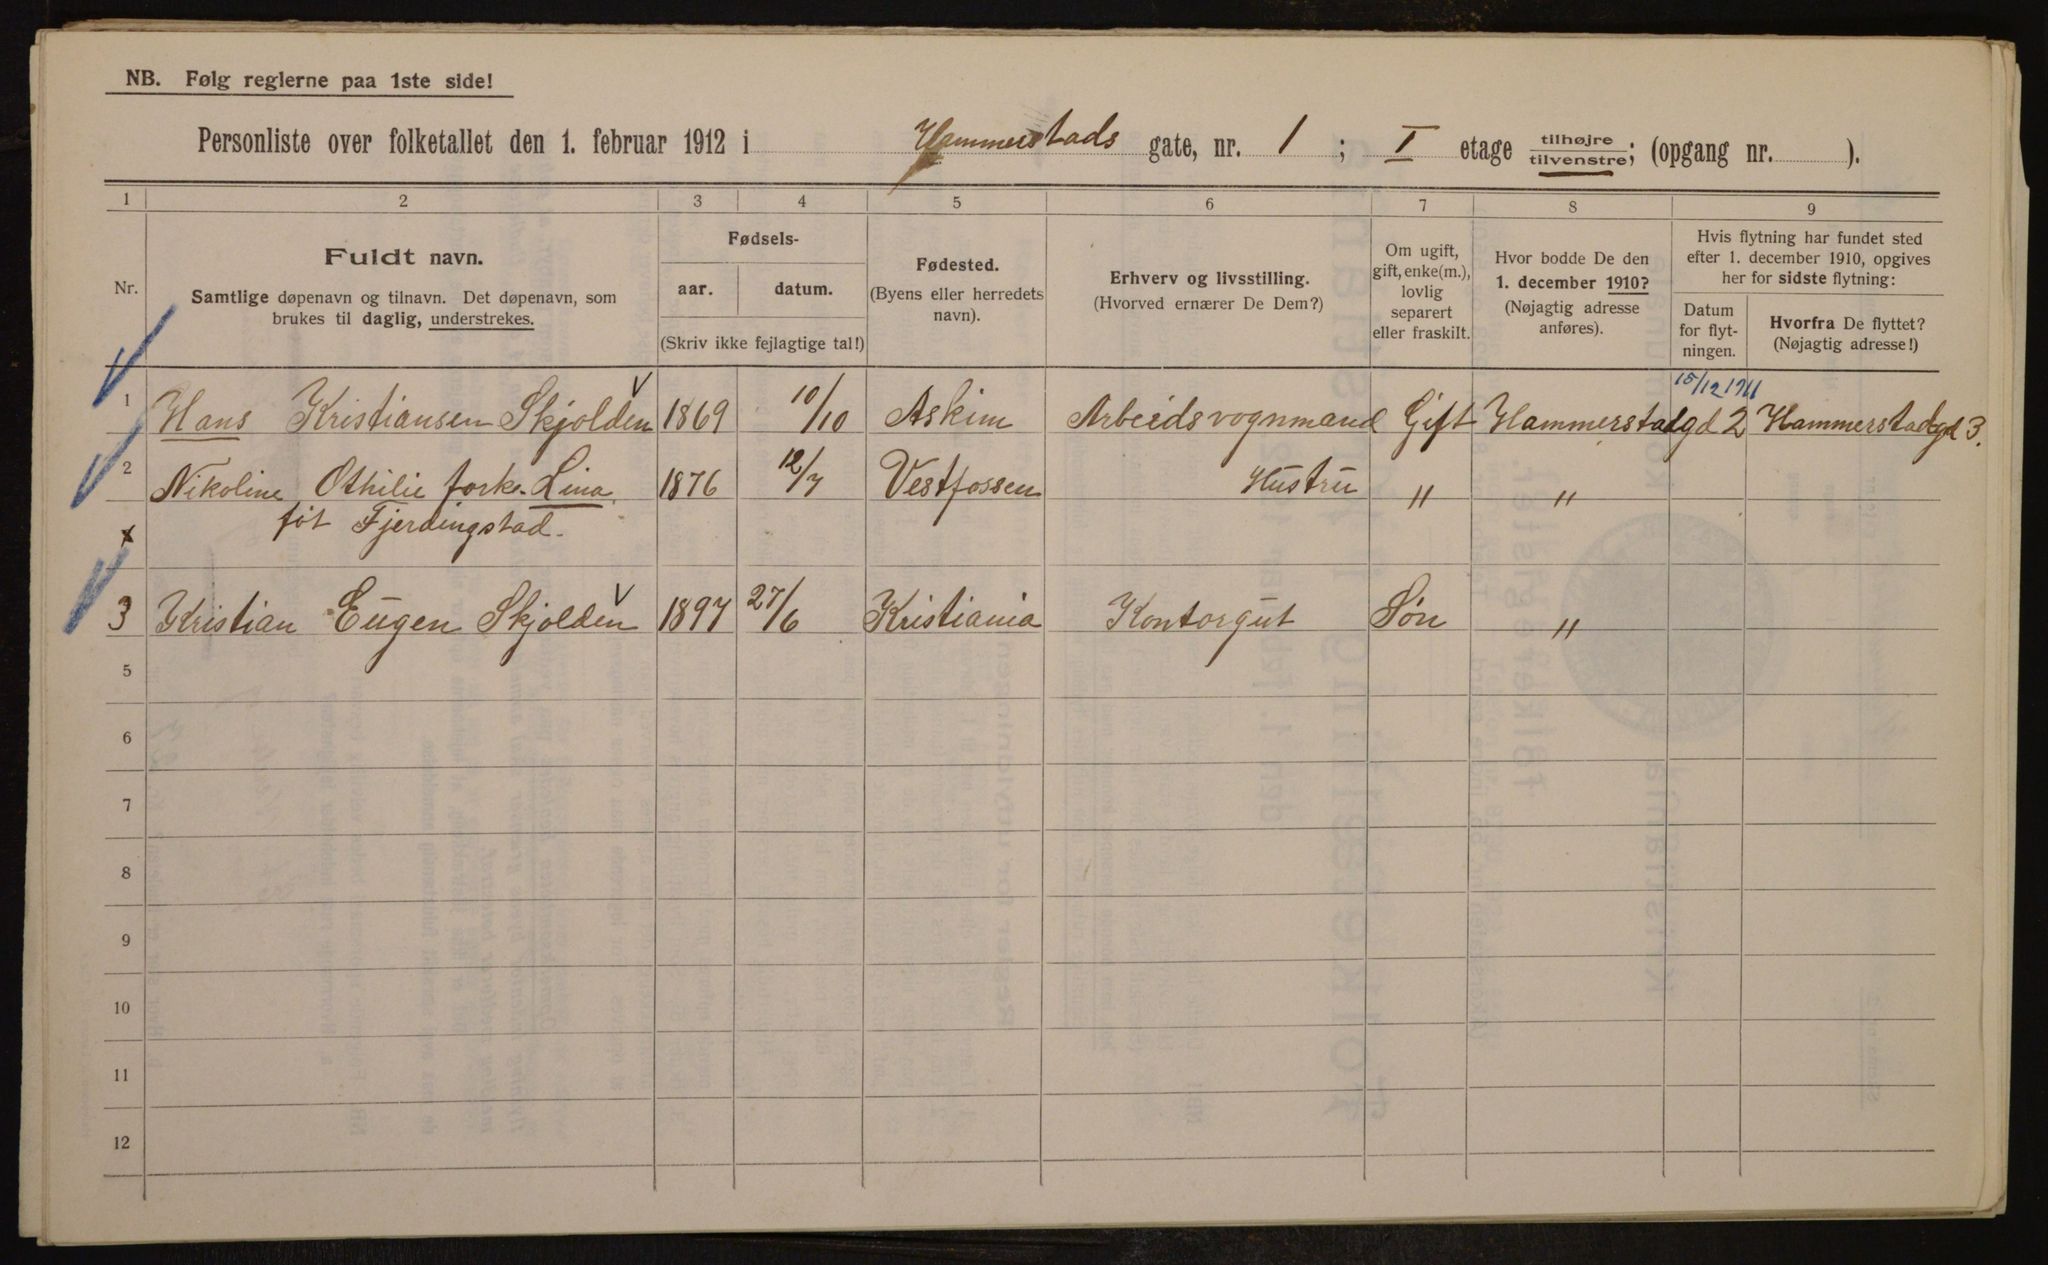 NB. Følg reglerne paa 1ste side!
Personliste over folketallet den 1. februar 1912 i Hammerstads gate, nr. 1 ; I etage tilhøjre/tilvenstre; (opgang nr. ).
1 2 3 4 5 6 7 8 9
Nr.
Fuldt navn.
Samtlige døpenavn og tilnavn. Det døpenavn, som
brukes til daglig, understrekes.
Fødsels-
aar. datum.
(Skriv ikke fejlagtige tal!)
Fødested.
(Byens eller herredets
navn).
Erhverv og livsstilling.
(Hvorved ernærer De Dem?)
Om ugift,
gift, enke(m.),
lovlig
separert
eller fraskilt.
Hvor bodde De den
1. december 1910?
(Nøjagtig adresse
anføres).
Hvis flytning har fundet sted
efter 1. december 1910, opgives
her for sidste flytning:
Datum
for flyt-
ningen.
Hvorfra De flyttet?
(Nøjagtig adresse!)
15/12 1911
1 Hans Kristiansen Skjolden 1869 10/10 Askim Arbeidsvognmand Gift Hammerstadgd 2 Hammerstadgd 3.
2 Nikoline Othilie fork. Lina, 1876 12/7 Vestfossen Hustru " "
føt Fjerdingstad.
3 Kristian Eugen Skjolden 1897 27/6 Kristiania Kontorgut Søn "
5
6
7
8
9
10
11
12